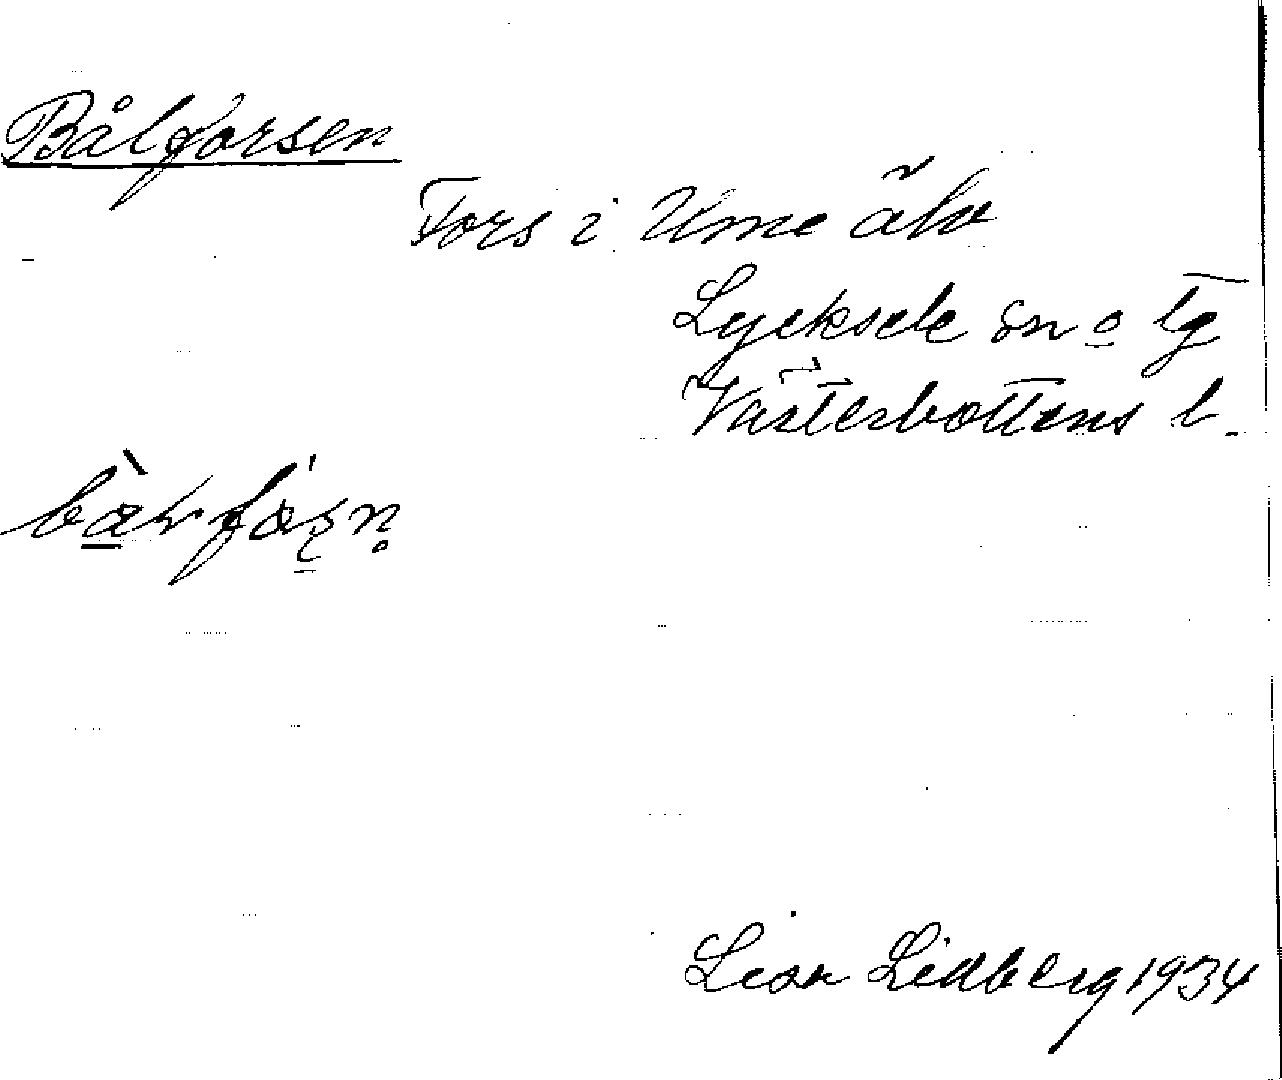 Bålforsen
Fors i Ume älv
Lycksele sn o tg
Västerbottens l.
Lidberg 1934